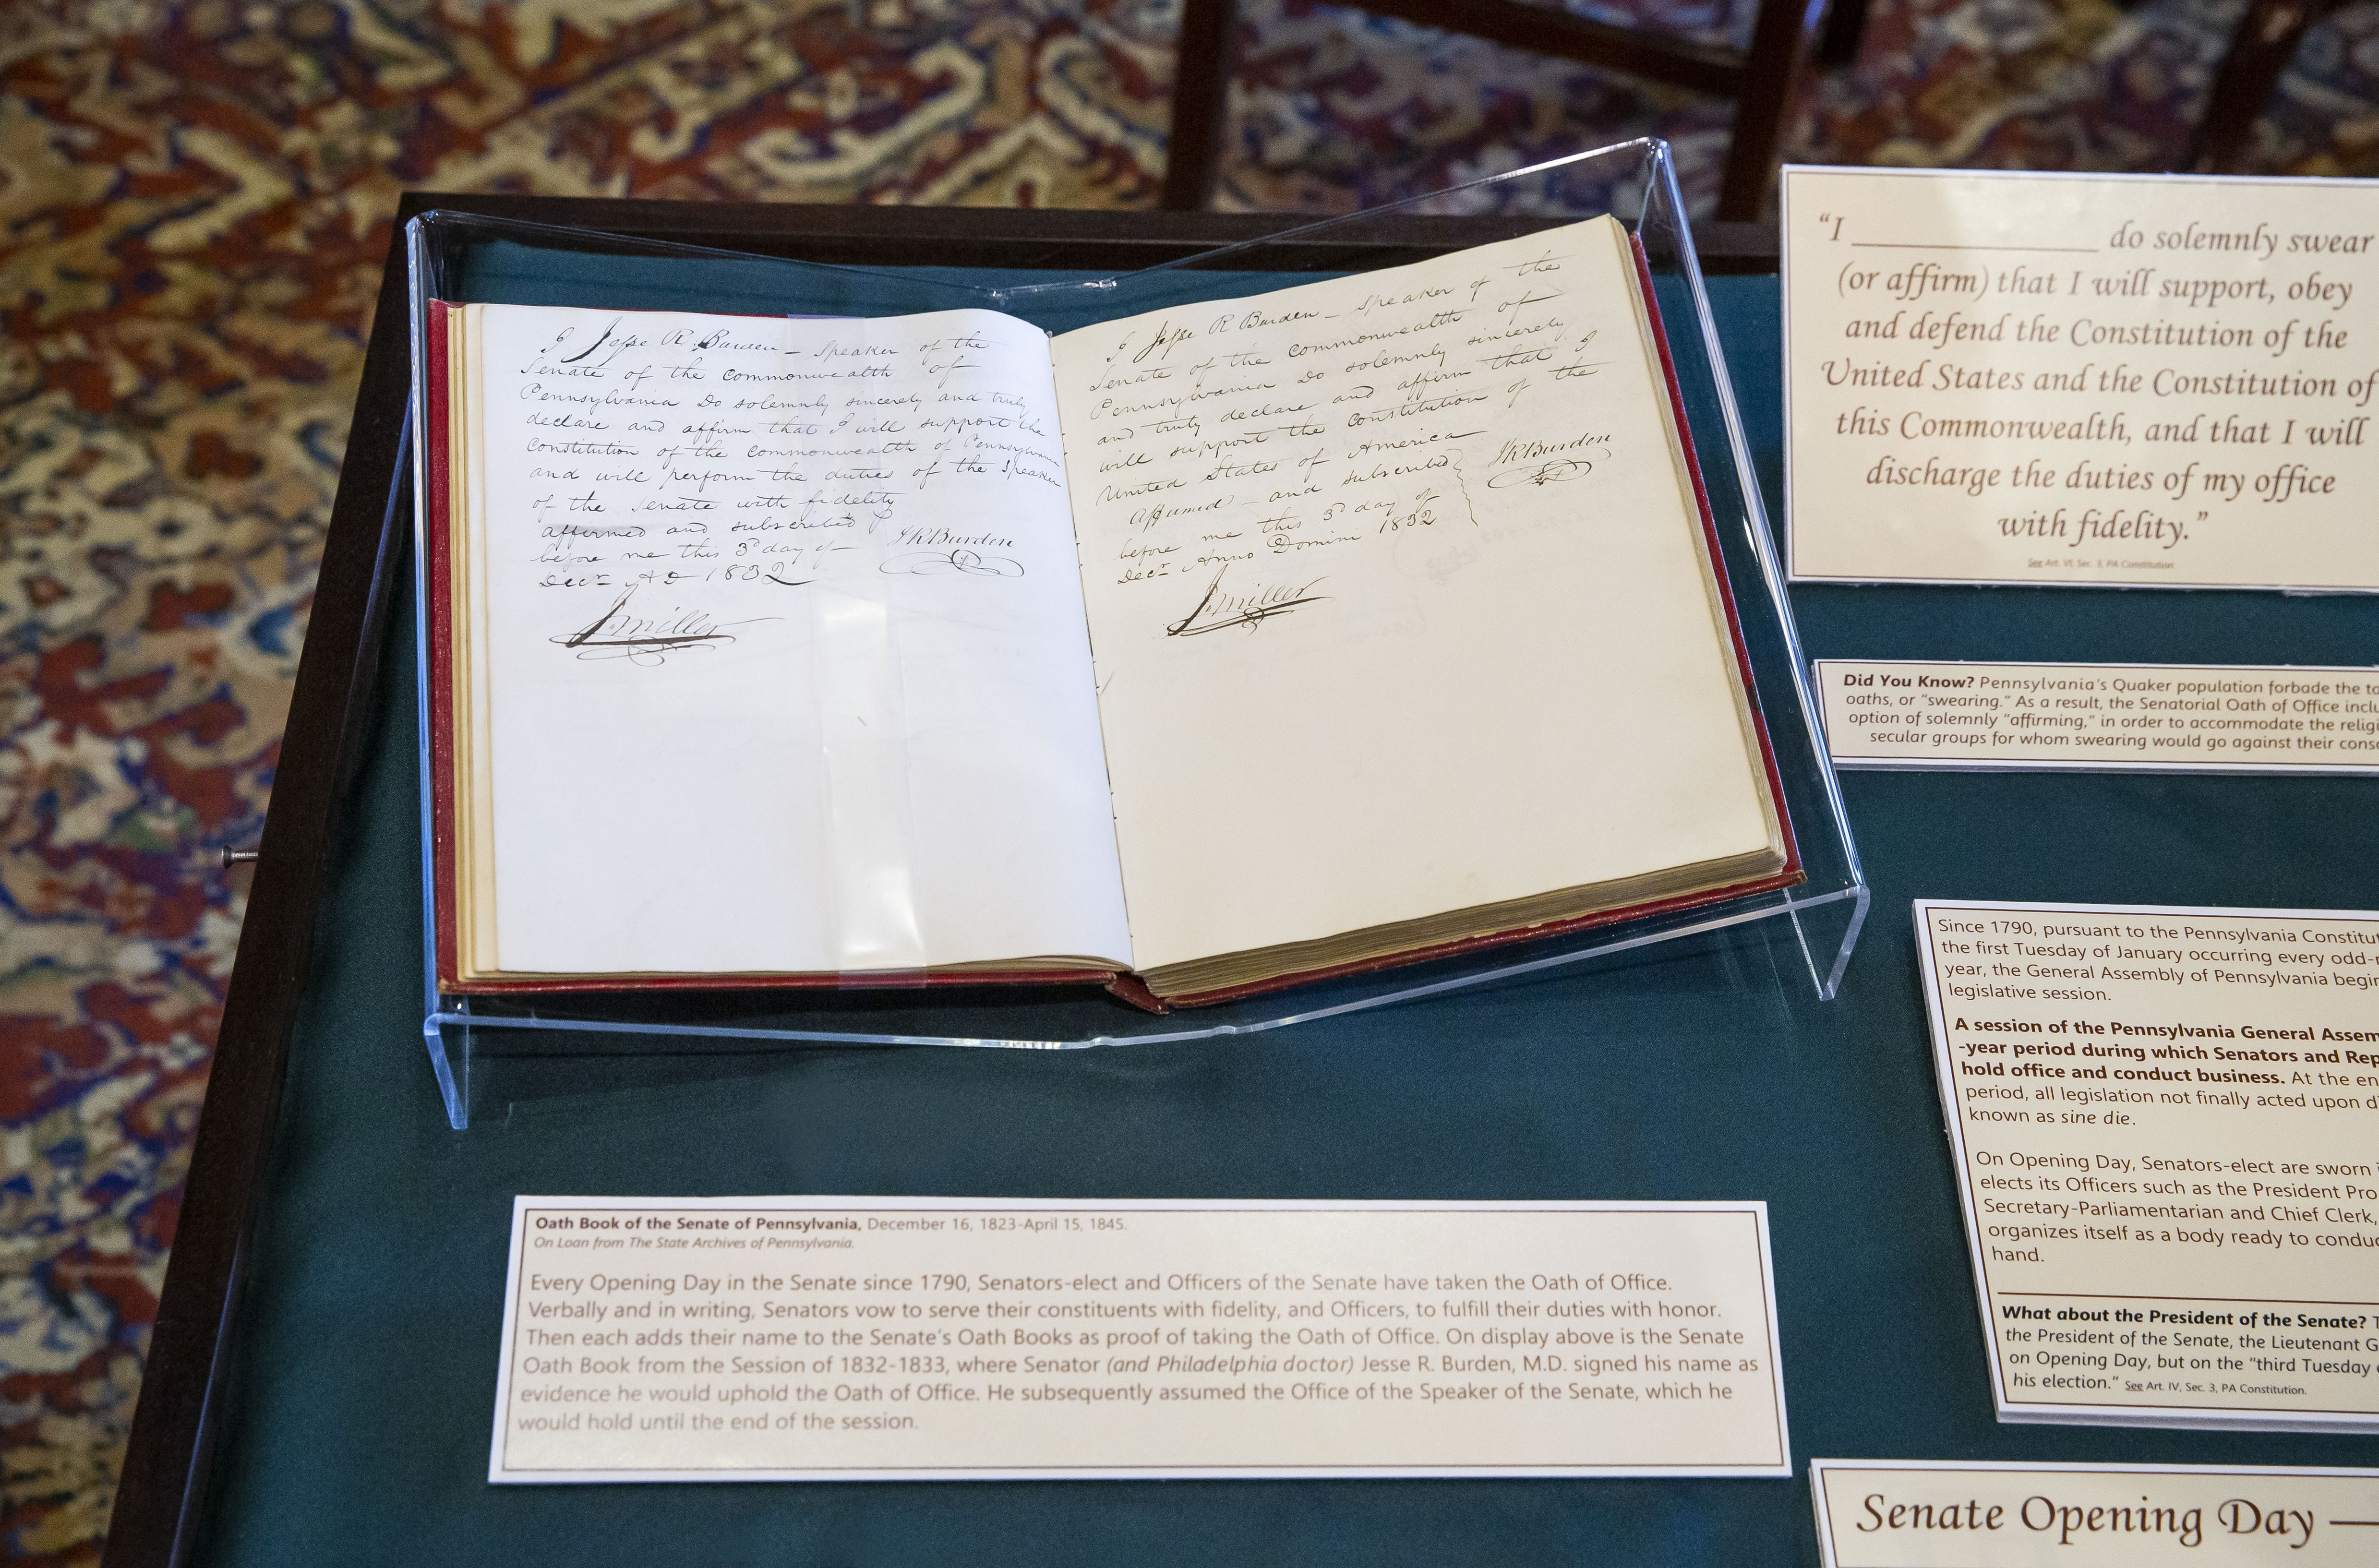 I Jesse R. Burden – Speaker of the
Senate of the commonwealth of
Pennsylvania Do solemnly sincerely and truly
declare and affirm that I will support the
Constitution of the commonwealth of Pennsylvania
and will perform the duties of the Speaker
of the Senate with fidelity
affirmed and subscribed
before me this 3d day of
Decr AD 1832
JRBurden
Jmiller
I Jesse R Burden – Speaker of the
Senate of the commonwealth of
Pennsylvania Do solemnly sincerely
and truly declare and affirm that I
will support the Constitution of the
United States of America
Affirmed – and subscribed
before me this 3d day of
Decr Anno Domini 1832
JRBurden
Jmiller
“I ____________ do solemnly swear
(or affirm) that I will support, obey
and defend the Constitution of the
United States and the Constitution of
this Commonwealth, and that I will
discharge the duties of my office
with fidelity.”
See Art. VI, Sec. 3, PA Constitution
Did You Know? Pennsylvania's Quaker population forbade the
oaths, or “swearing.” As a result, the Senatorial Oath of Office
option of solemnly “affirming,” in order to accommodate the
secular groups for whom swearing would go against their
Since 1790, pursuant to the Pennsylvania
the first Tuesday of January occurring every
year, the General Assembly of Pennsylvania
legislative session.
A session of the Pennsylvania General
-year period during which Senators and
hold office and conduct business. At the
period, all legislation not finally acted upon
known as sine die.
On Opening Day, Senators-elect are sworn
elects its Officers such as the President Pro
Secretary-Parliamentarian and Chief Clerk,
organizes itself as a body ready to
hand.
What about the President of the Senate?
the President of the Senate, the Lieutenant
on Opening Day, but on the “third Tuesday
his election.” See Art. IV, Sec. 3, PA Constitution.
Oath Book of the Senate of Pennsylvania, December 16, 1823-April 15, 1845.
On Loan from The State Archives of Pennsylvania.
Every Opening Day in the Senate since 1790, Senators-elect and Officers of the Senate have taken the Oath of Office.
Verbally and in writing, Senators vow to serve their constituents with fidelity, and Officers, to fulfill their duties with honor.
Then each adds their name to the Senate's Oath Books as proof of taking the Oath of Office. On display above is the Senate
Oath Book from the Session of 1832-1833, where Senator (and Philadelphia doctor) Jesse R. Burden, M.D. signed his name as
evidence he would uphold the Oath of Office. He subsequently assumed the Office of the Speaker of the Senate, which he
would hold until the end of the session.
Senate Opening Day —